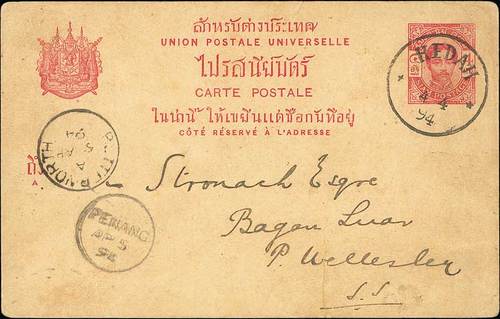 สำหรับต่างประเทศ
UNION POSTALE UNIVERSELLE
ไปรสนียบัตร์
CARTE POSTALE
ในน่านี้ ให้เขียนแต่ชื่อกับที่อยู่
CÔTÉ RÉSERVÉ À L'ADRESSE
KEDAH
4 4
94
NORTH
A
5 AP
94
ถึง
A
PENANG
AP 5
94
Stronach Esqre
Bagan Luar
P. Wellesley
S.S